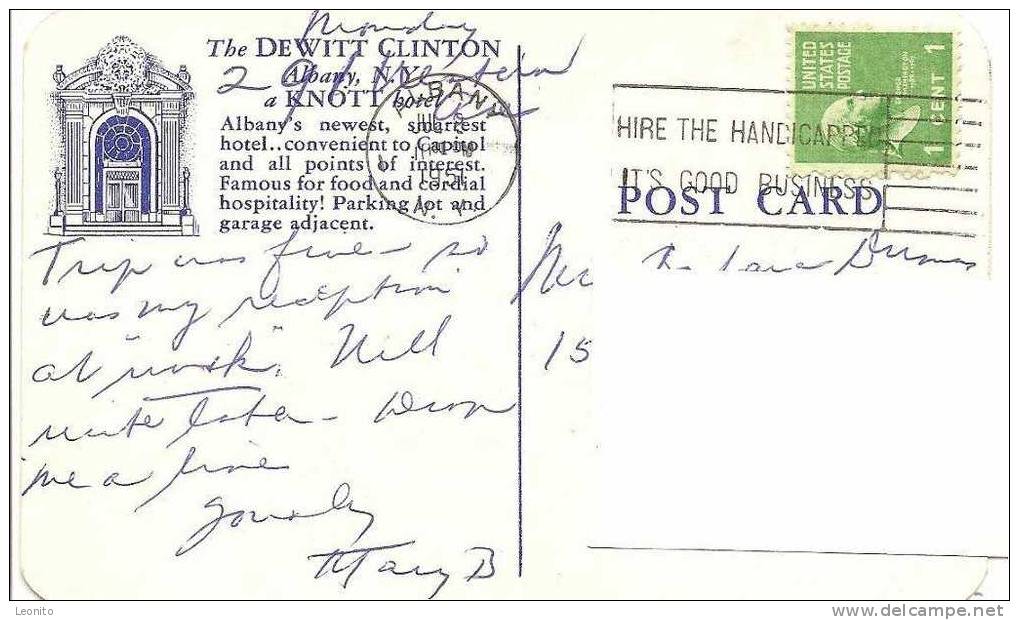 Monday
The DEWITT CLINTON
Albany, N.Y.
291 Western
Ave
a KNOTT hotel
Albany's newest, smartest
hotel..convenient to Capitol
and all points of interest.
Famous for food and cordial
hospitality! Parking lot and
garage adjacent.
Trip was fine - so
was my reception
at "work". Will
write later - Drop
me a line
Yours
Mary B
ALBANY
JUL
1951
N.Y.
HIRE THE HANDICAPPED
IT'S GOOD BUSINESS
UNITED
STATES
POSTAGE
1 CENT 1
POST CARD
15
Leonito
www.delcampe.net